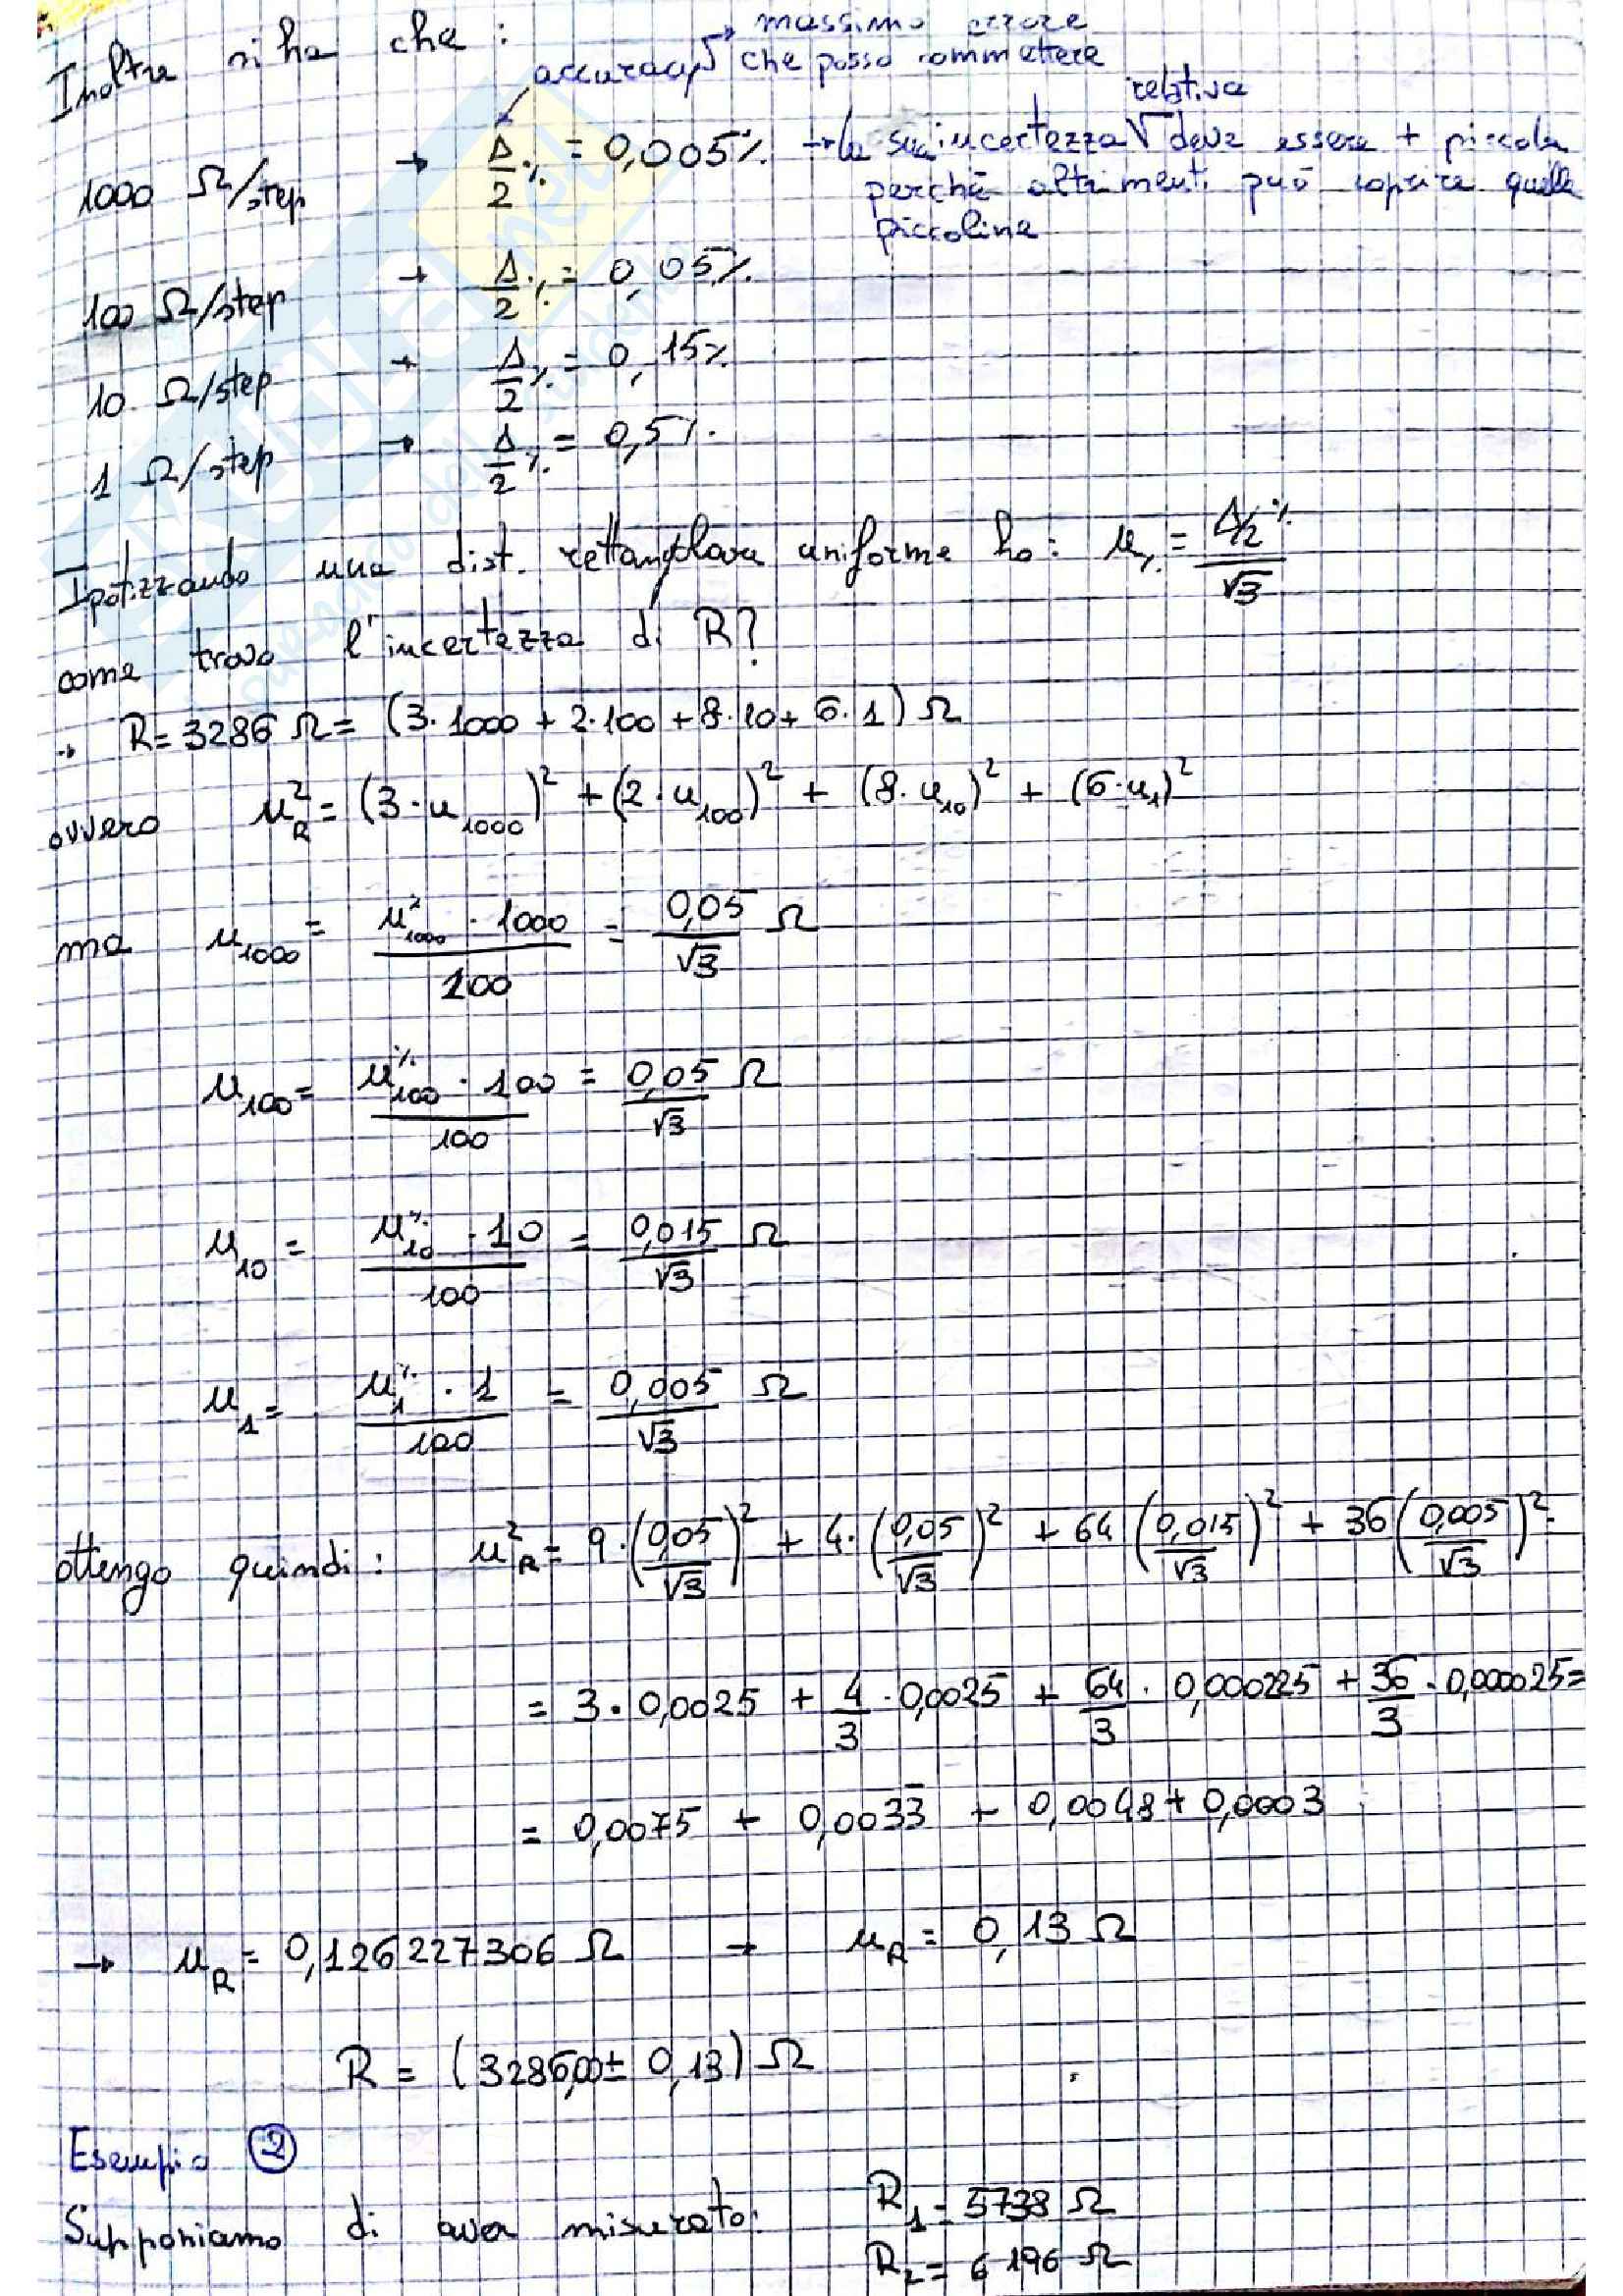 massimo errore
Inoltre si ha che : accuracy → che posso commettere
relativa
1000 Ω/step → Δ/2 % = 0,005% → la sua incertezza √ deve essere + piccola
perché altrimenti può coprire quelle
piccoline
100 Ω/step → Δ/2 % = 0,05%
10 Ω/step → Δ/2 % = 0,15%
1 Ω/step → Δ/2 % = 0,5%.
Ipotizzando una dist. rettangolare uniforme ho: u% = (Δ/2 %)/√3
come trovo l'incertezza di R?
→ R = 3286 Ω = (3·1000 + 2·100 + 8·10 + 6·1) Ω
ovvero u²_R = (3·u_1000)² + (2·u_100)² + (8·u_10)² + (6·u_1)²
ma u_1000 = (u^%_1000 · 1000)/100 = 0,05/√3 Ω
u_100 = (u^%_100 · 100)/100 = 0,05/√3 Ω
u_10 = (u^%_10 · 10)/100 = 0,015/√3 Ω
u_1 = (u^%_1 · 1)/100 = 0,005/√3 Ω
ottengo quindi : u²_R = 9·(0,05/√3)² + 4·(0,05/√3)² + 64(0,015/√3)² + 36(0,005/√3)²
= 3·0,0025 + 4/3·0,0025 + 64/3·0,000225 + 36/3·0,000025 =
= 0,0075 + 0,0033̄ + 0,0048 + 0,0003
→ u_R = 0,126227306 Ω → u_R = 0,13 Ω
R = (3286,00 ± 0,13) Ω
Esempio ②
Supponiamo di aver misurato: R_1 = 5738 Ω
R_2 = 6196 Ω